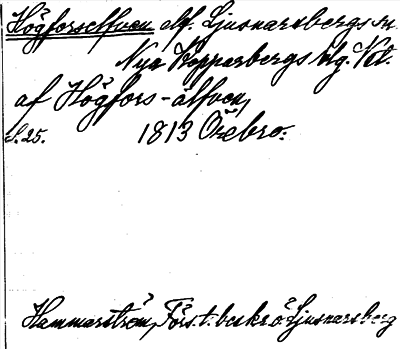 Högforselfven elf. Ljusnarsbergs sn
Nya Kopparbergs blg. Vbl.
af Högfors-älfven,
S. 25. 1813 Örebro.
Hammarström, Förs. t. beskr. ö. Ljusnarsberg